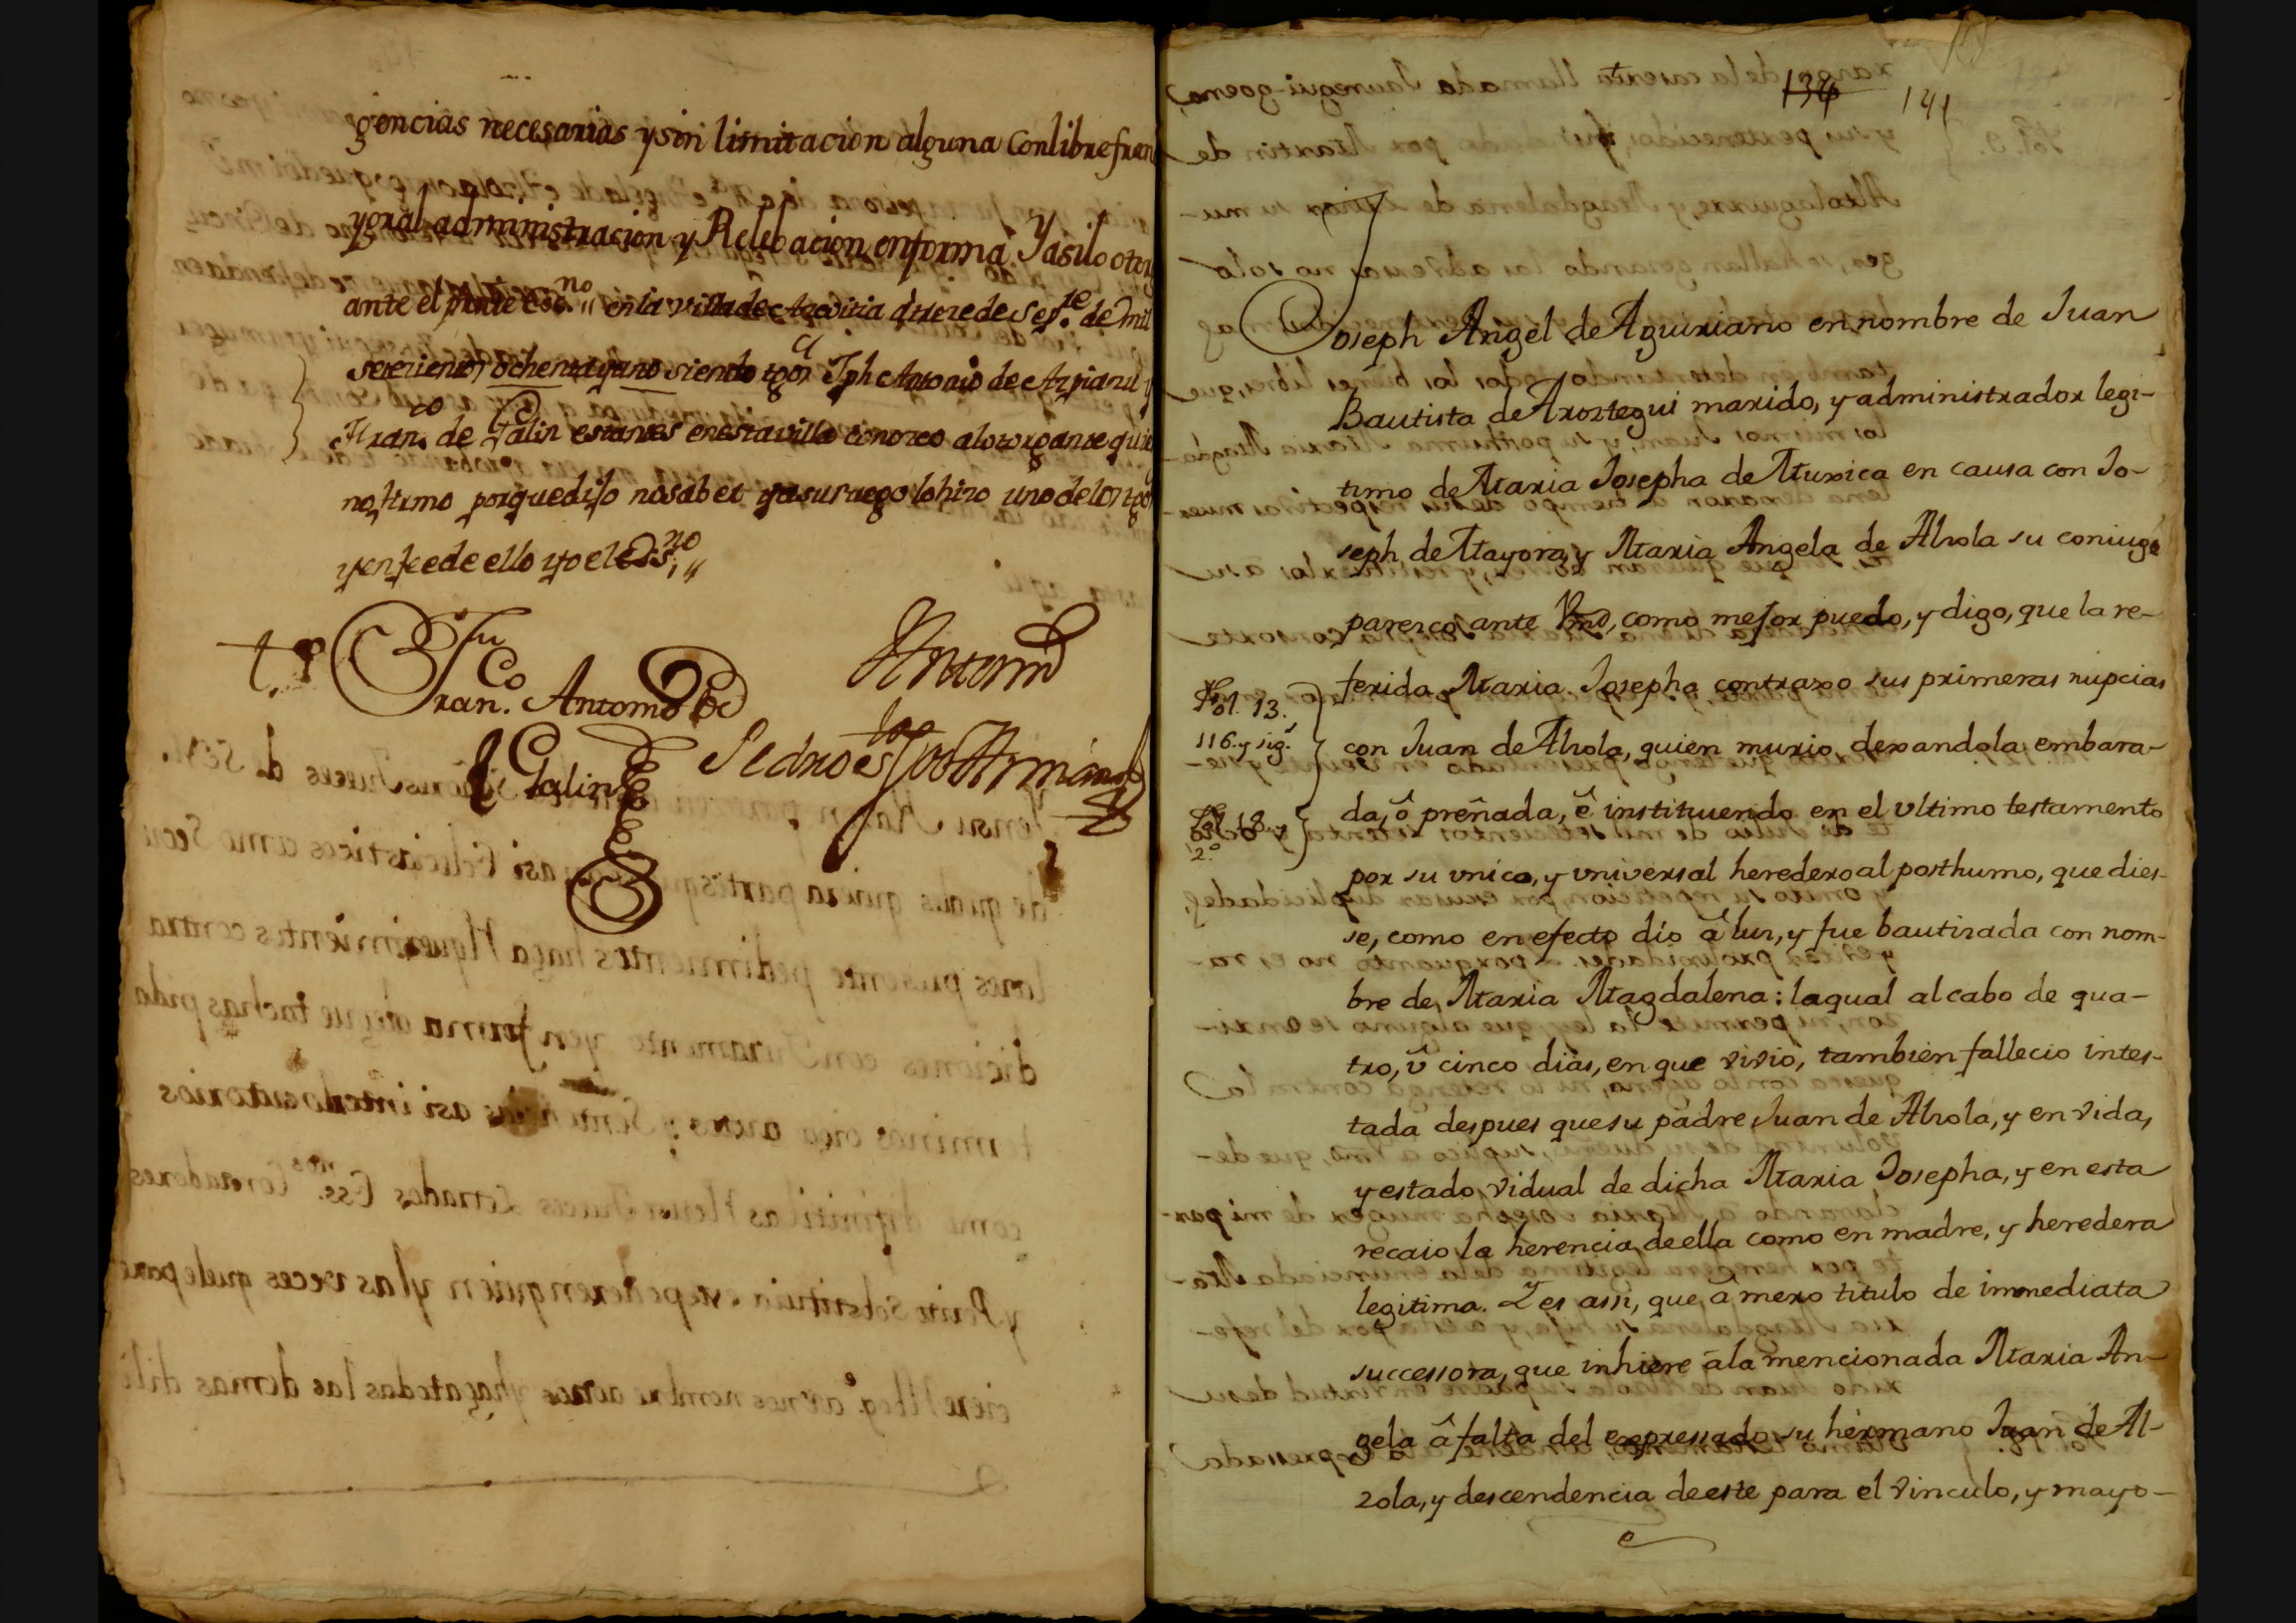 gencias necesarias y sin limitacion alguna con libre fran
y gral administracion y Relebacion en forma Y asi lo otor
ante el preste Ess.no en la villa de Azcoitia a trece de Sep.re de mil
setecientos ochenta y uno siendo tgos Jph Antonio de Azpiazu y
Fran.co de Galin estantes en esta villa conozco al otorgante quie
no firmo porque dijo no saber y a su ruego lo hizo uno de los tgos
y en fee de ello yo el Ess.no
t.go Fran.co Antonio de
Galin
Antemi
Pedro
134 141
Joseph Angel de Aguiriano en nombre de Juan
Bautista de Aroztegui marido, y administrador legi-
timo de Maria Josepha de Muxica en causa con Jo-
seph de Mayora, y Maria Angela de Alzola su coniuge
parezco ante Vmd, como mejor puedo, y digo, que la re-
ferida Maria Josepha contraxo sus primeras nupcias
Fol. 13.
116. y sig.
con Juan de Alzola, quien murio dexandola embara-
Fol. 18. y
2.o
da, ô preñada, ê instituiendo en el vltimo testamento
por su vnico, y vniversal heredero al posthumo, que dies-
se, como en efecto dio â luz, y fue bautizada con nom-
bre de Maria Magdalena: la qual al cabo de qua-
tro, û cinco dias, en que vivio, tambien fallecio intes-
tada despues que su padre Juan de Alzola, y en vida,
y estado vidual de dicha Maria Josepha, y en esta
recaio la herencia de ella como en madre, y heredera
legitima. Y es assi, que â mero titulo de immediata
successora, que inhiere â la mencionada Maria An-
gela â falta del expressado su hermano Juan de Al-
zola, y descendencia de este para el vinculo, y mayo-